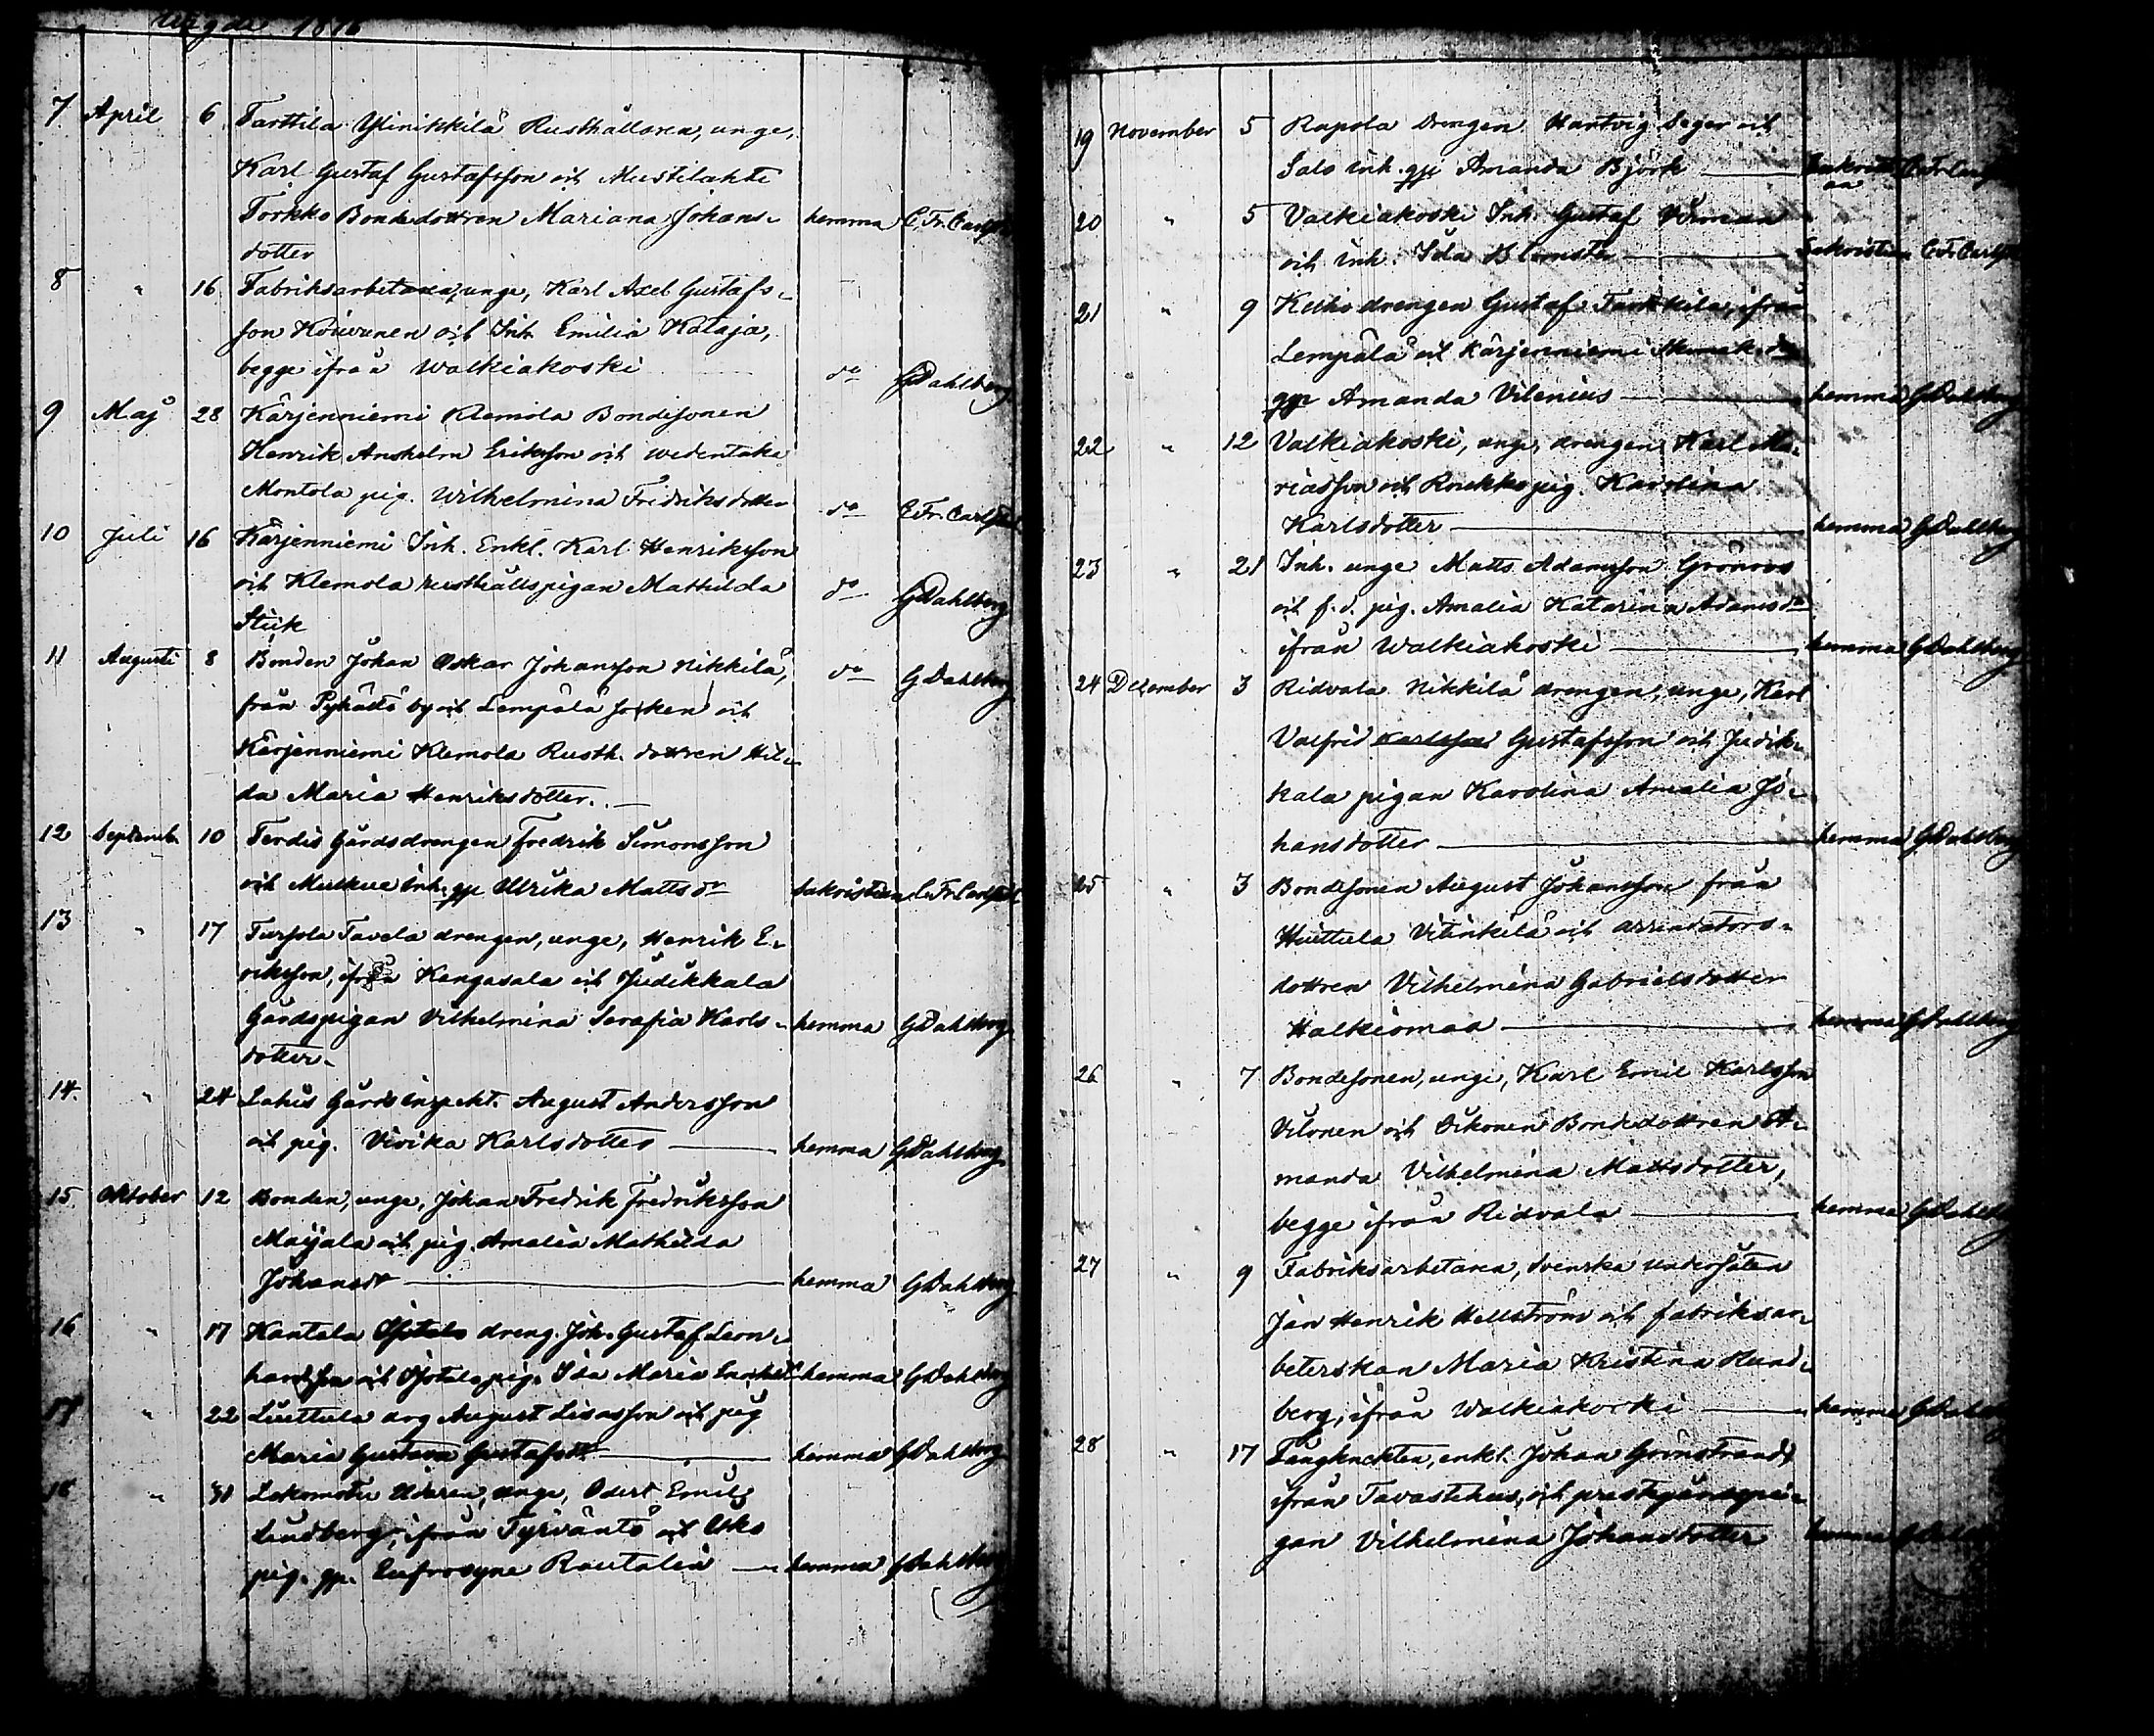 Wigde 1876
7 April 6 Tarttila Ylinikkilä Rusthållaren, unge,
Karl Gustaf Gustafsson och Mustilahti
Torkko Bondedottren Mariana Johans-
dotter hemma C. Fr. Carlst
8 " 16 Fabriksarbetaren, unge, Karl Axel Gustafs-
son Kouvunen och Inh. Emilia Kataja,
begge ifrån Walkiakoski do GDahlberg
9 Maj 28 Kärjenniemi Klemola Bondesonen
Henrik Anshelm Eriksson och Wedentaka
Montola pig. Wilhelmina Fredriksdotter do C. Fr. Carlst
10 Juli 16 Kärjenniemi Inh. Enkl. Karl Henriksson
och Klemola rusthållspigan Mathilda
Stük do GDahlberg
11 Augusti 8 Bonden Johan Oskar Johansson Nikkilä,
från by och Lempälä socken och
Kärjenniemi Klemola Rusth. dottren Hil-
da Maria Henriksdotter. do GDahlberg
12 September 10 Gårdsdrengen Fredrik Simonsson
och inh. gp Ulrika Mattsdr Sakristian C. Fr. Carlst
13 " 17 Turpola Tavela drengen, unge, Henrik E-
riksson, ifrån Kangasala och Judikkala
Gårdspigan Vilhelmina Serafia Karls-
dotter. hemma GDahlberg
14. " 24 Lahis Gårds inspekt. August Andersson
och pig. Vivika Karlsdotter hemma GDahlberg
15. Oktober 12 Bonden, unge, Johan Fredrik Fredriksson
och pig. Amalia Mathilda
Johansdr hemma GDahlberg
16 " 17 Kantala dreng. Joh. Gustaf Leon-
hardsson och pig. Ida Maria hemma GDahlberg
17 " 22 drg August Lisasson och pig
Maria Gustava Gustafsdr hemma GDahlberg
18 " 31 Lokomotiv Eldaren, unge, Odert Emil
Lindberg, ifrån Tyrväntö och
pig. gp. Eufrosyne Rautalin hemma GDahlberg
19 November 5 Rapola Drengen Hartvig Seger och
Salo inh. gp Amanda Björk C. Fr. Carlst
20 " 5 Valkiakoski Inh. Gustaf
och inh. Ida Blomster Sakristian C. Fr. Carlst
21 " 9 drengen Gustaf ifrån
Lempälä och Kärjenniemi
gp Amanda Vilenius hemma GDahlberg
22 " 12 Valkiakoski, unge, drengen Karl Ma-
riasson och Roukko pig. Karolina
Karlsdotter hemma GDahlberg
23 " 21 Inh. unge Matts Adamsson Grönroos
och f. d. pig. Amalia Katarina Adamsdr
ifrån Walkiakoski hemma GDahlberg
24 December 3 Ridvala Nikkilä drengen, unge, Karl
Valfrid Karlsson Gustafsson och Judik-
kala pigan Karolina Amalia Jo-
hansdotter hemma GDahlberg
25 " 3 Bondesonen August Johansson från
Huittula och arrendators-
dottren Vilhelmina Gabrielsdotter
hemma GDahlberg
26 " 7 Bondesonen, unge, Karl Emil Karlsson
Vilonen och Oikonen Bondedottren A-
manda Vilhelmina Mattsdotter,
begge ifrån Ridvala hemma GDahlberg
27 " 9 Fabriksarbetaren, svenska undersåten
Jan Henrik Hellström och fabriksar-
beterskan Maria Kristina Rund-
berg, ifrån Walkiakoski hemma GDahlberg
28 " 17 Fångknekten, enkl. Johan Grönstrand,
ifrån Tavastehus, och prestgårdspi-
gan Vilhelmina Johansdotter hemma